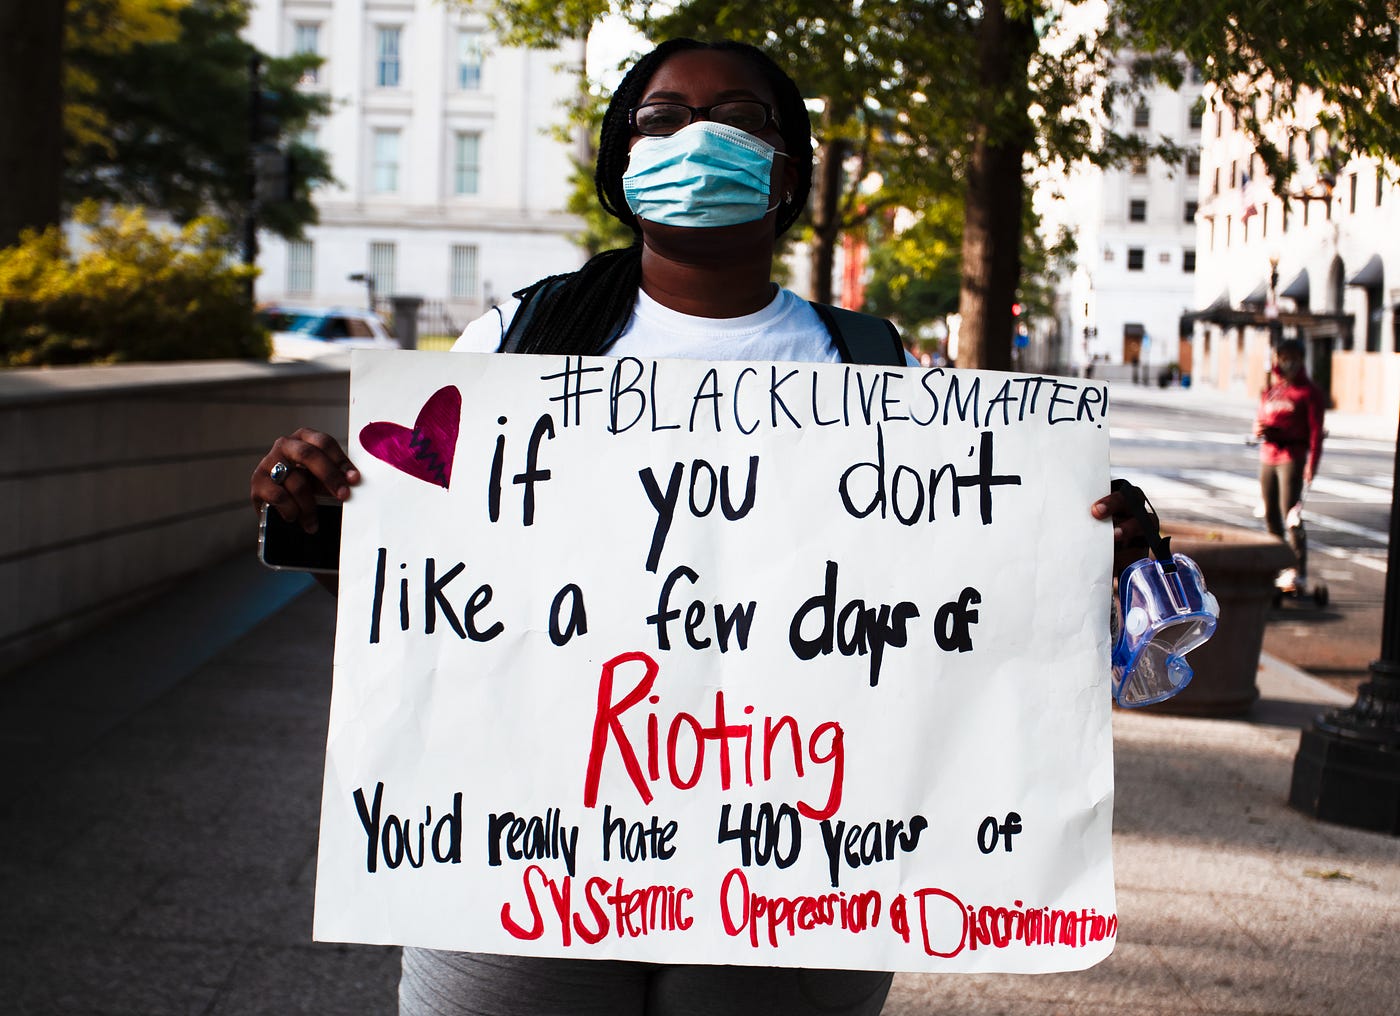 #BLACKLIVESMATTER!
if you don't
like a few days of
Rioting
You'd really hate 400 years of
SYStemic Oppression & Discrimination